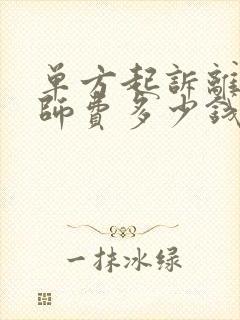 单方起訴離
師費多少錢
一抹冰绿